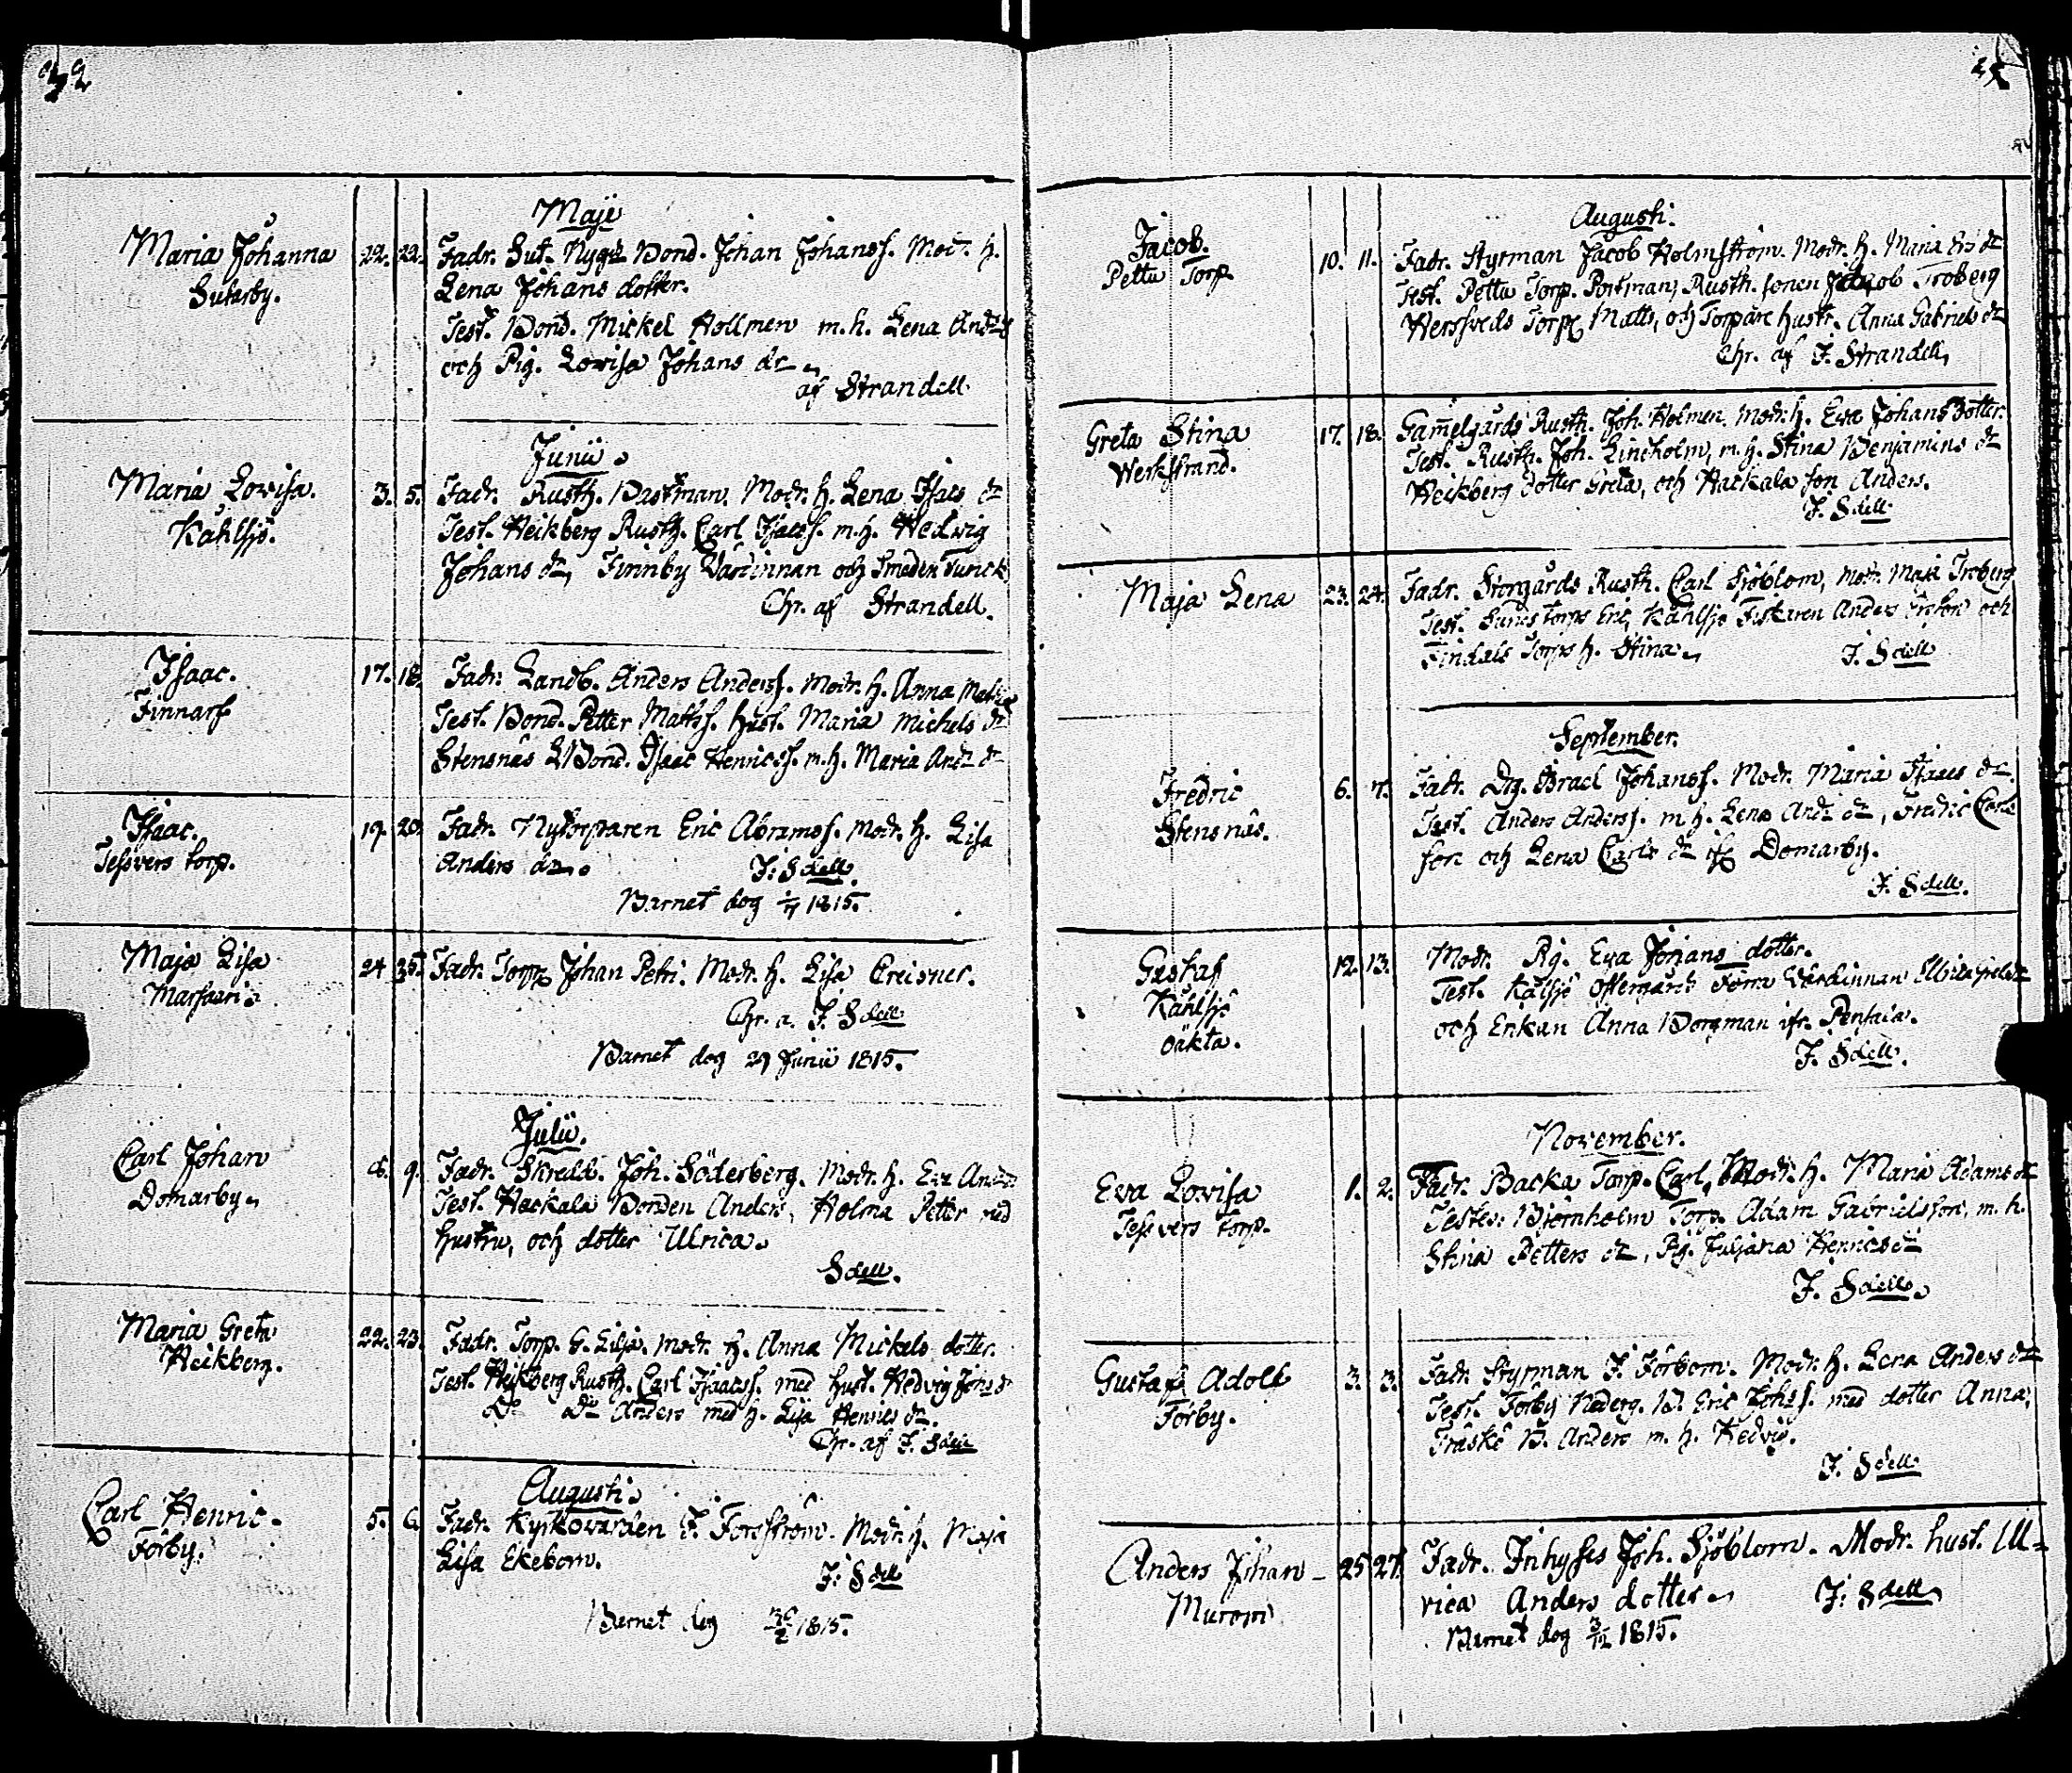 32
Maje
Maria Johanna 22. 23. Fadr. Sut. Nygds Bond. Johan Johanss. Modr. h.
Sutarby. Lena Johans dotter.
Test. Bond. Mickel Hollmen m.h. Lena And:
och Pig. Lovisa Johans dr
af Strandell
Junii
Maria Lovisa. 3. 5. Fadr. Rusth. Bastman. Modr. h. Lena Isacs dr
Kåhlsjö. Test. Heikberg Rusth. Carl Isacss. m.h. Hedvig
Johans dr, Finnby Värdinnan och Smeden Turick
Chr. af Strandell.
Isaac. 17. 18. Fadr. Landb. Anders Anderss. Modr. h. Anna
Finnarf Test. Bond. Petter Mattss. Hust. Maria Michels dr
Stensnäs Bond. Isaac Henricss. m.h. Maria And: dr
Isaac. 19. 20. Fadr. Nytorparen Eric Abramss. Modr. h. Lisa
Tessvers torp. Anders dr. J. Sdell.
Barnet dog 1/7 1815.
Maja Lisa 24 25. Fadr. Torp. Johan Petri. Modr. h. Lisa Creisner.
Marsaari Chr. a. J. Sdell
Barnet dog 29 Junii 1815.
Julii.
Carl Johan 6. 9. Fadr. Skredd. Joh. Söderberg. Modr. h. Eva And:
Domarby Test. Hackala Bonden Anders, Holma Petter med
hustru, och dotter Ulrica.
Sdell.
Maria Greta 22. 23. Fadr. Torp. G. Lilja. Modr. h. Anna Mickels dotter.
Heikberg. Test. Heikberg Rusth. Carl Isaacss. med hust. Hedvig Johs dr
Do Do Anders med h. Lisa Henrics dr.
Chr. af J. Sdell
Augusti.
Carl Henric. 5. 6. Fadr. Kyrkovärden J. Forsström. Modr. h. Maja
Förby. Lisa Ekebom. J. Sdell
Barnet dog 1815.
Augusti.
Jacob. 10. 11. Fadr. Styrman Jacob Holmström. Modr. h. Maria Ers dr
Pettu Torp. Test. Pettu Torp. Portman, Rusth. sonen Jacob Troberg
Torp. Matts, och Torpare hustr. Anna Gabriels dr
Chr. af J. Strandell,
Greta Stina 17. 18. Gamelgårds Rusth. Joh. Holmen. Modr. h. Eva Johans Dotter.
Werkstrand. Test. Rusth. Joh. Lindholm, m.h. Stina Benjamins dr
Heikberg dotter Greta, och Hackala son Anders.
J. Sdell
Maja Lena 23. 24. Fadr. Storgårds Rusth. Carl Sjöblom, Modr. Maja Troberg
Test. torps Eric, Kåhlsjö Fiskaren Anders Ersson och
Findals Torps h. Stina. J. Sdell
September.
Fredric 6. 7. Fadr. Drg. Israel Johanss. Modr. Maria Isaacs dr.
Stensnäs. Test. Anders Anderss. m h. Lena And: dr, Fredric Carls
son och Lena Carls dr Domarby.
J. Sdell.
Gustaf 12. 13. Modr. Pig. Eva Johans dotter.
Kåhlsjö Test. Kålsjö
oäkta. och Enkan Anna Borgman ifr. Pensala.
J. Sdell.
November.
Eva Lovisa 1. 2. Fadr. Backa Torp. Carl, Modr. h. Maria Adams dr
Tessvers torp. Testes. Biörnholm Torp. Adam Gabrielsson, m. h.
Stina Petters dr, Pig. Juliana Henricsdr
J. Sdell.
Gustaf Adolf 3. 3. Fadr. Styrman J. Förbom. Modr. h. Lena Anders dr
Förby. Test. Förby Nederg. B. Eric Johss. med dotter Anna,
Träskö B. Anders m. h. Hedvig.
J. Sdell
Anders Johan 25 27. Fadr. Inhyses Joh. Sjöblom. Modr. hust. Ul-
Murom rica Anders dotter. J. Sdell
Barnet dog 3/12 1815.